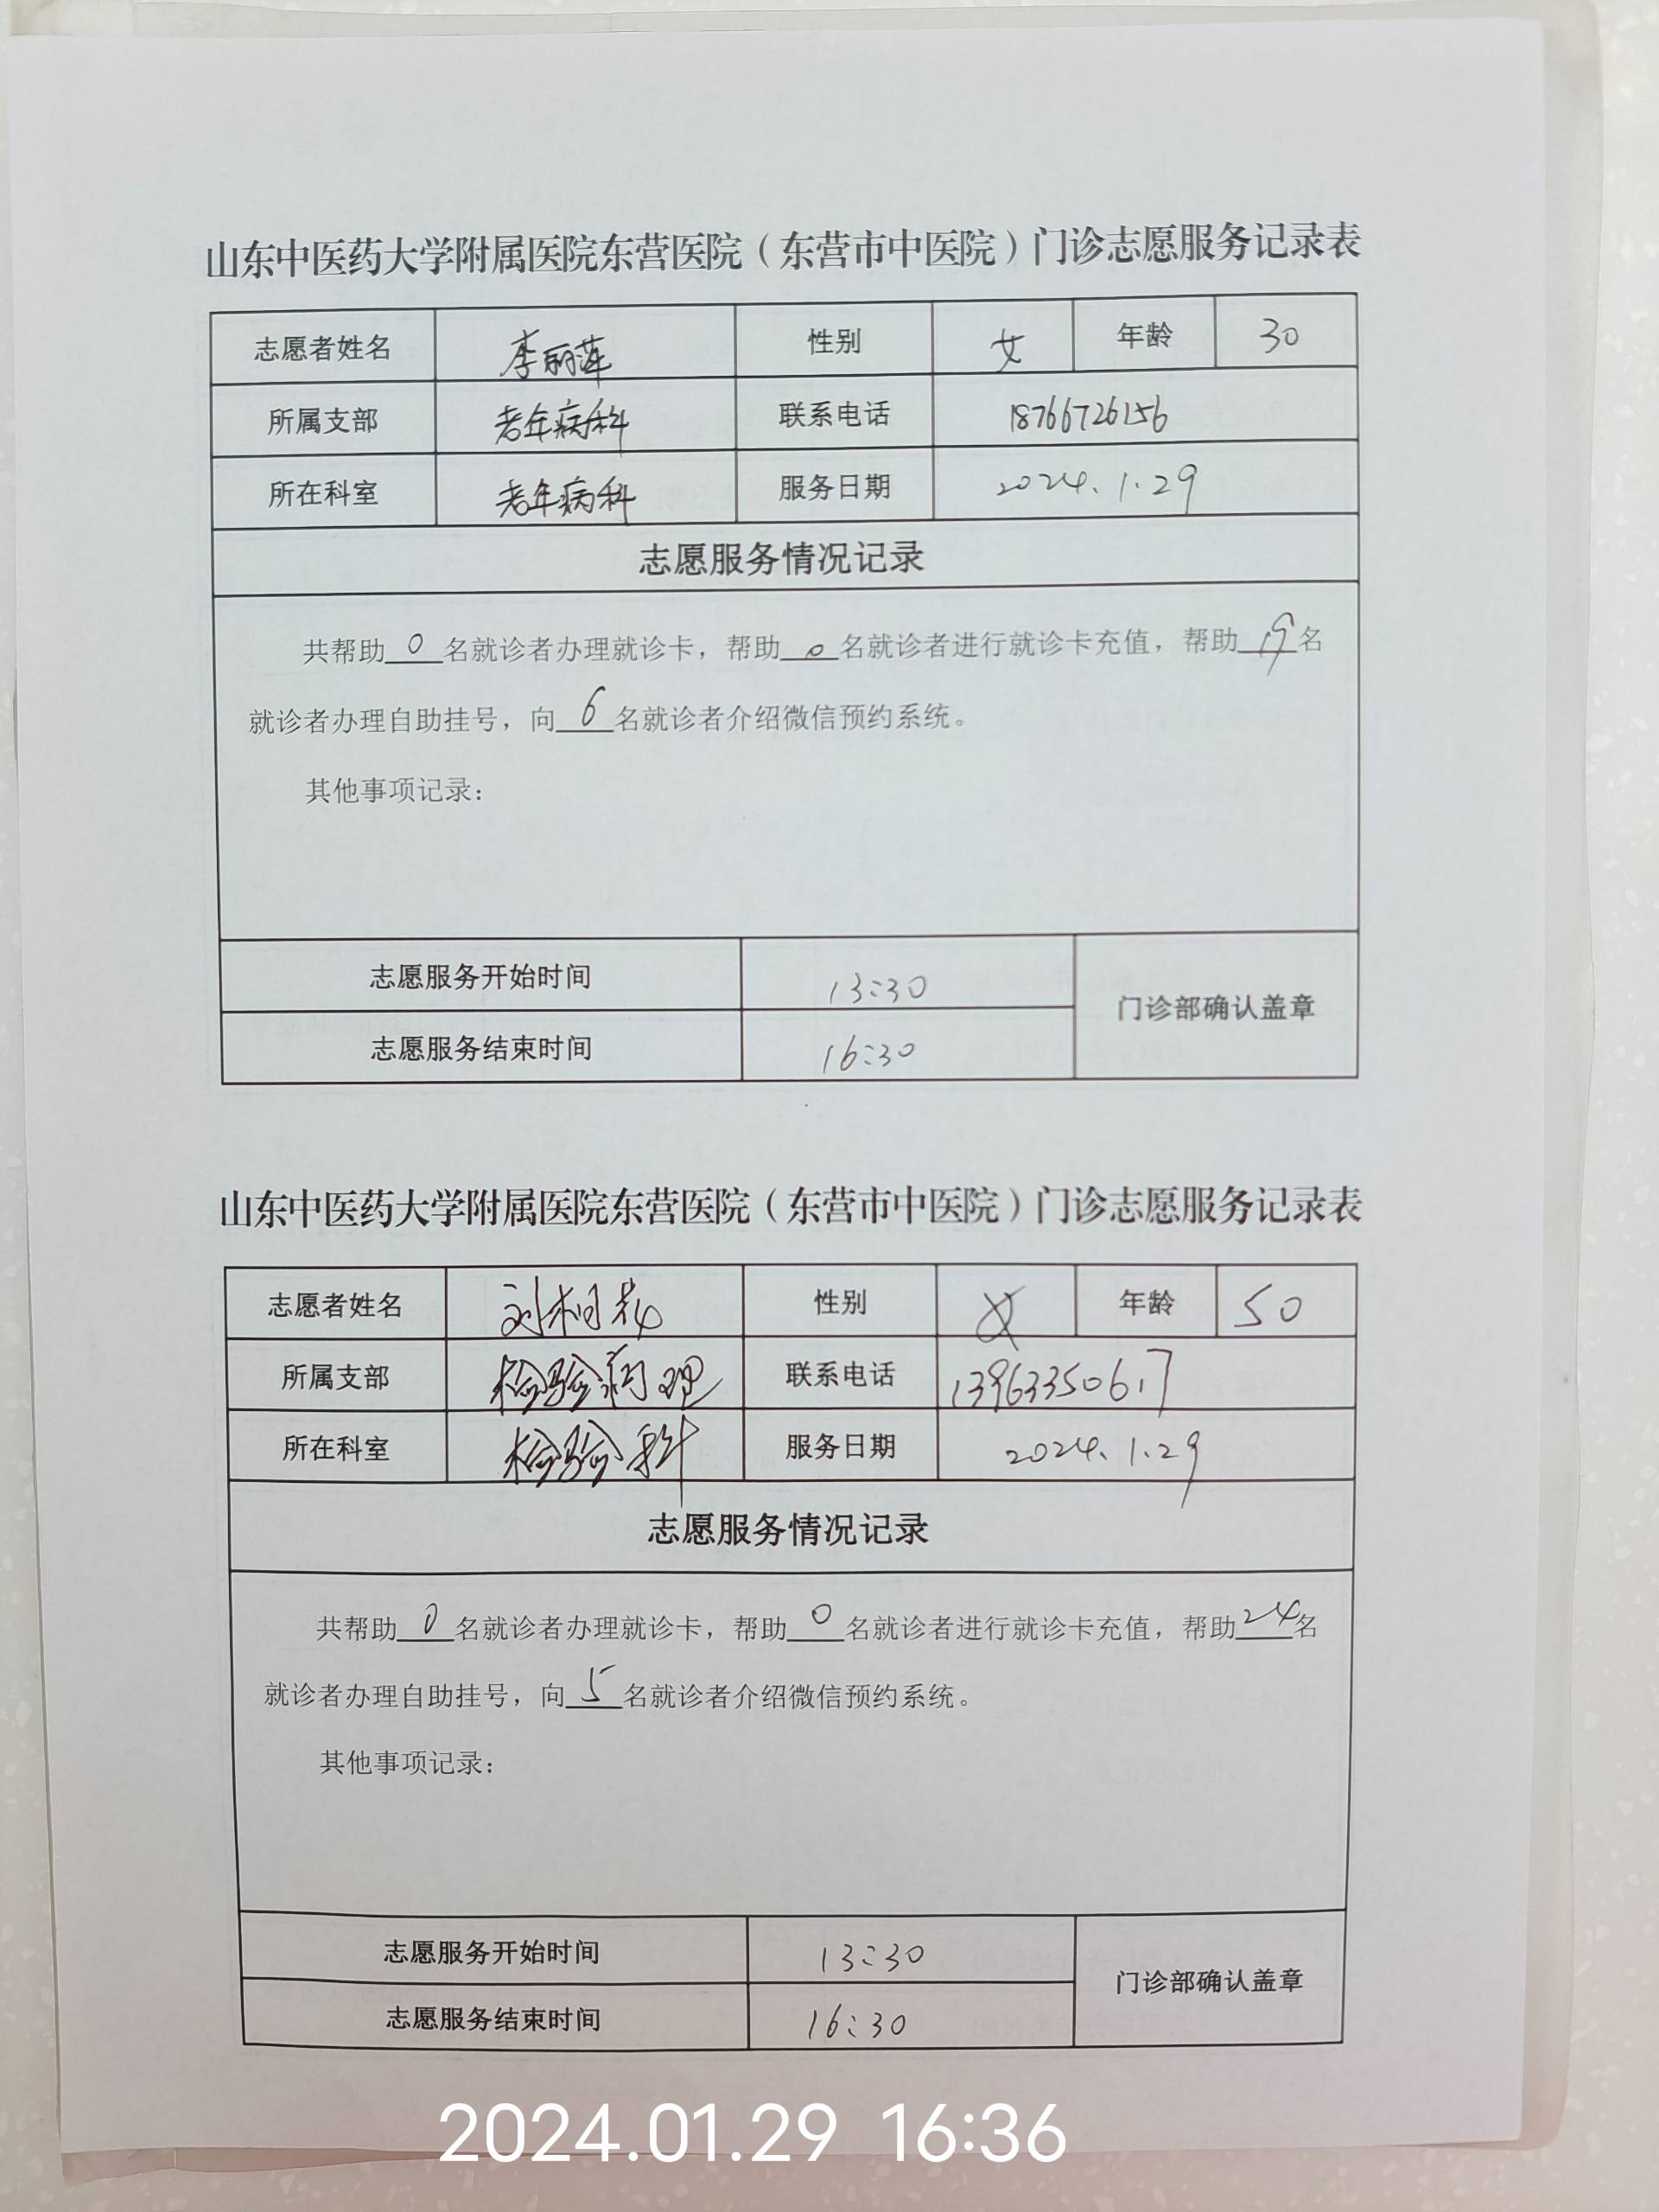 山东中医药大学附属医院东营医院（东营市中医院）门诊志愿服务记录表
志愿者姓名 李丽萍 性别 女 年龄 30
所属支部 老年病科 联系电话 18766726156
所在科室 老年病科 服务日期 2024.1.29
志愿服务情况记录
共帮助0名就诊者办理就诊卡，帮助0名就诊者进行就诊卡充值，帮助19名
就诊者办理自助挂号，向6名就诊者介绍微信预约系统。
其他事项记录：
志愿服务开始时间 13:30
门诊部确认盖章
志愿服务结束时间 16:30
山东中医药大学附属医院东营医院（东营市中医院）门诊志愿服务记录表
志愿者姓名 刘桐花 性别 女 年龄 50
所属支部 检验病理 联系电话 13963350617
所在科室 检验科 服务日期 2024.1.29
志愿服务情况记录
共帮助0名就诊者办理就诊卡，帮助0名就诊者进行就诊卡充值，帮助24名
就诊者办理自助挂号，向5名就诊者介绍微信预约系统。
其他事项记录：
志愿服务开始时间 13:30
门诊部确认盖章
志愿服务结束时间 16:30
2024.01.29 16:36